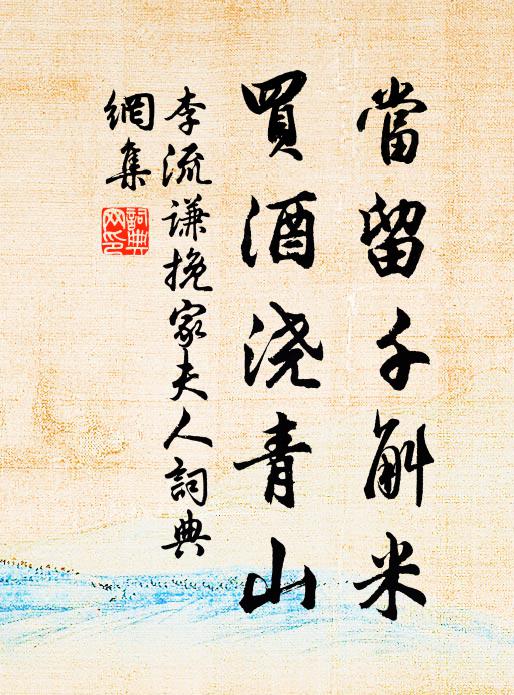 當留千斛米
買酒浇青山
李流谦挽家夫人詞典
網集
詞典
网印